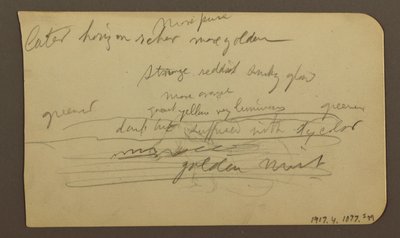 More pure
Later horizon richer more golden
Strange reddish smoky glow
more orange
greener yellow very luminous greener
dark but suffused with sky color
golden mist
1917.4.1077.